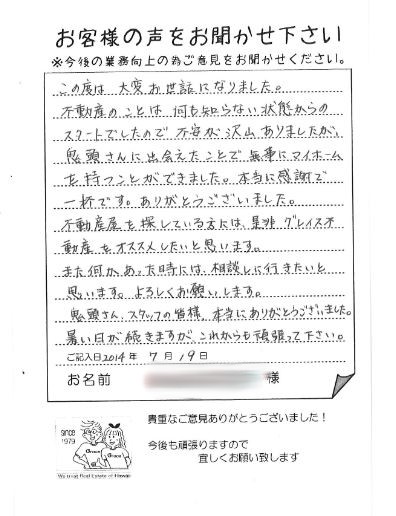 お客様の声をお聞かせ下さい
※今後の業務向上の為ご意見をお聞かせください。
この度は大変お世話になりました。
不動産のことは何も知らない状態からの
スタートでしたので不安が沢山ありましたが、
鬼頭さんに出会えたことで無事にマイホーム
を持つことができました。本当に感謝で
一杯です。ありがとうございました。
不動産屋を探している方には、是非、グレイス不
動産をオススメしたいと思います。
また何かあった時には、相談しに行きたいと
思います。よろしくお願いします。
鬼頭さん、スタッフの皆様、本当にありがとうございました。
暑い日が続きますが、これからも頑張って下さい。
ご記入日2014年 7月 19日
お名前 様
貴重なご意見ありがとうございました！
今後も頑張りますので
宜しくお願い致します
since
1979
Grace
Grace
We treat Real Estate of Hawaii